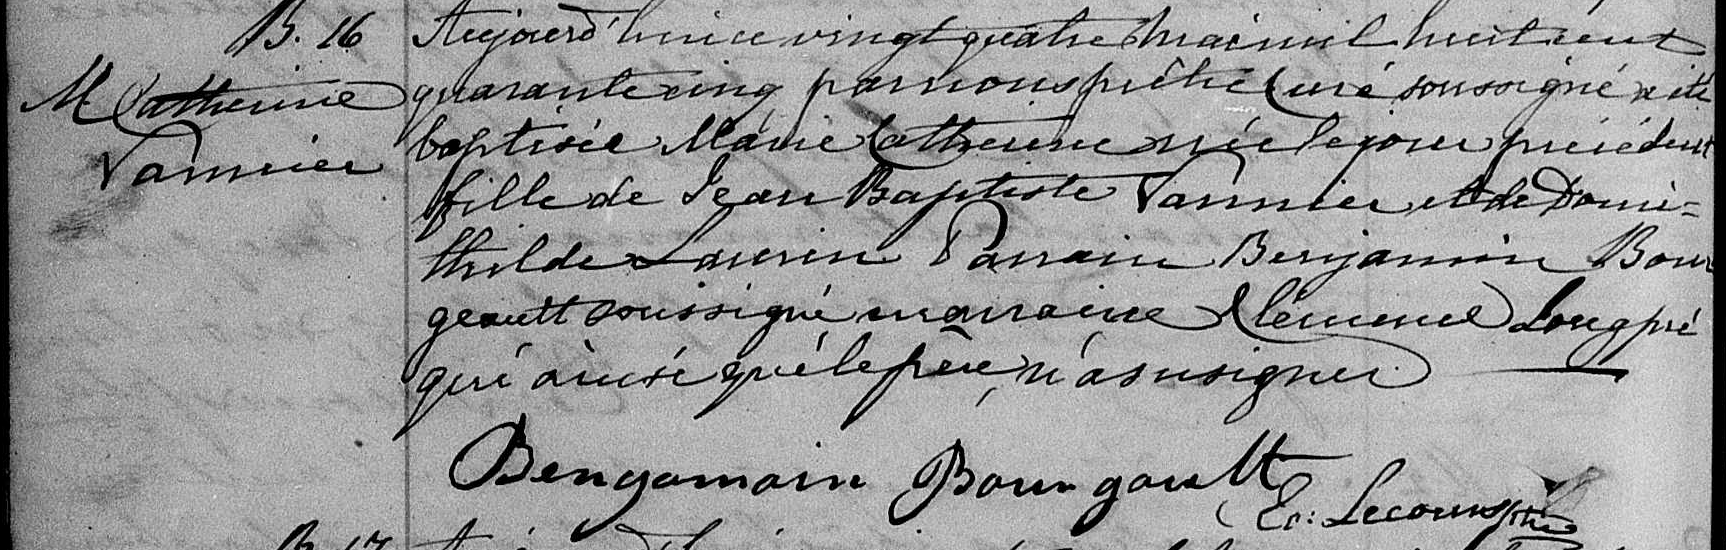 B. 16
M Catherine
Vannier
Aujourd'hui ce vingt quatre Mai mil huit cent
quarante cinq par nous prêtre Curé soussigné a été
baptisée Marie Catherine née le jour précédent
fille de Jean Baptiste Vannier et de Domi=
thilde Laurin Parrain Benjamin Bour
geault soussigné marraine Clémence Longpré
qui ainsi que le père n'a su signer
Bengamain Bourgault
Ed: Lecours ptre
B. 17